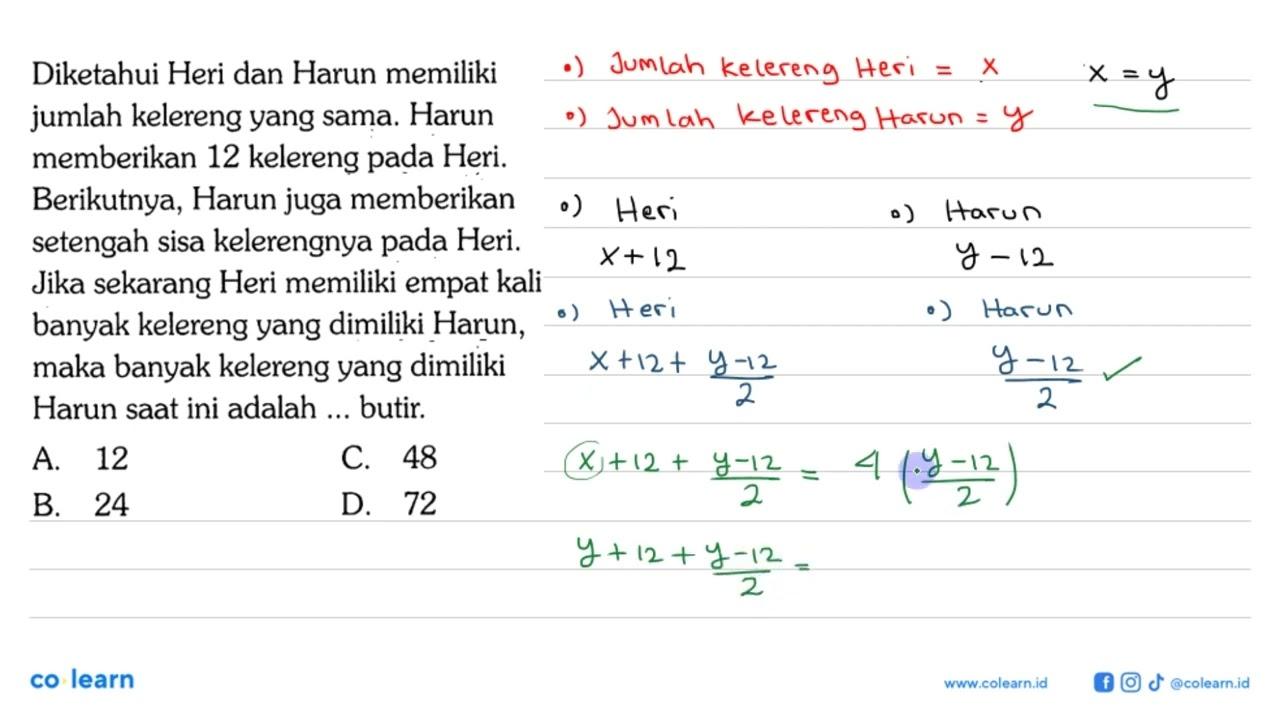 Diketahui Heri dan Harun memiliki
jumlah kelereng yang sama. Harun
memberikan 12 kelereng pada Heri.
Berikutnya, Harun juga memberikan
setengah sisa kelerengnya pada Heri.
Jika sekarang Heri memiliki empat kali
banyak kelereng yang dimiliki Harun,
maka banyak kelereng yang dimiliki
Harun saat ini adalah ... butir.
A. 12 C. 48
B. 24 D. 72
•) Jumlah kelereng Heri = x
•) Jumlah kelereng Harun = y
x = y
•) Heri •) Harun
x + 12 y - 12
•) Heri •) Harun
x + 12 + (y-12)/2 (y-12)/2 ✓
x + 12 + (y-12)/2 = 4 ((y-12)/2)
y + 12 + (y-12)/2 =
co learn
www.colearn.id @colearn.id